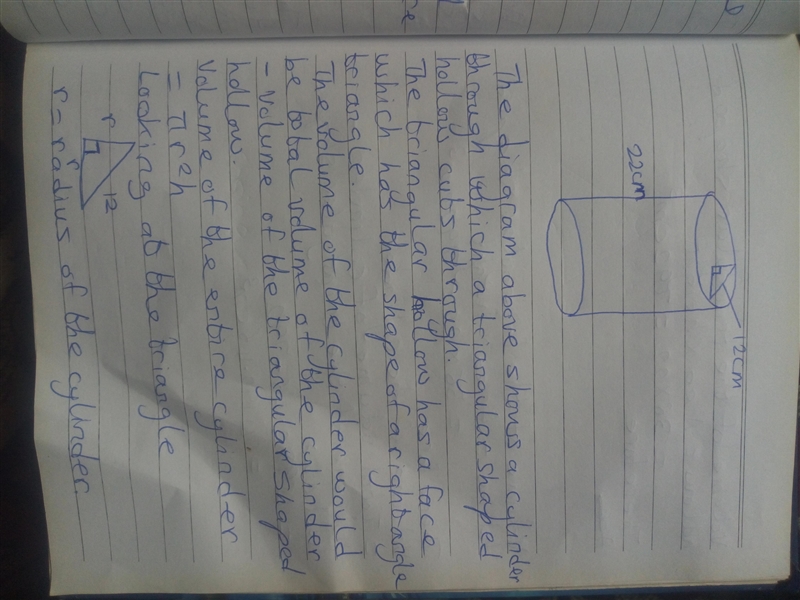 12cm
22cm
The diagram above shows a cylinder
through which a triangular shaped
hollow cuts through.
The triangular hollow has a face
which has the shape of a right angle
triangle.
The volume of the cylinder would
be total volume of the cylinder
- volume of the triangular shaped
hollow.
Volume of the entire cylinder
= πr²h
Looking at the triangle
r 12
r
r = radius of the cylinder.